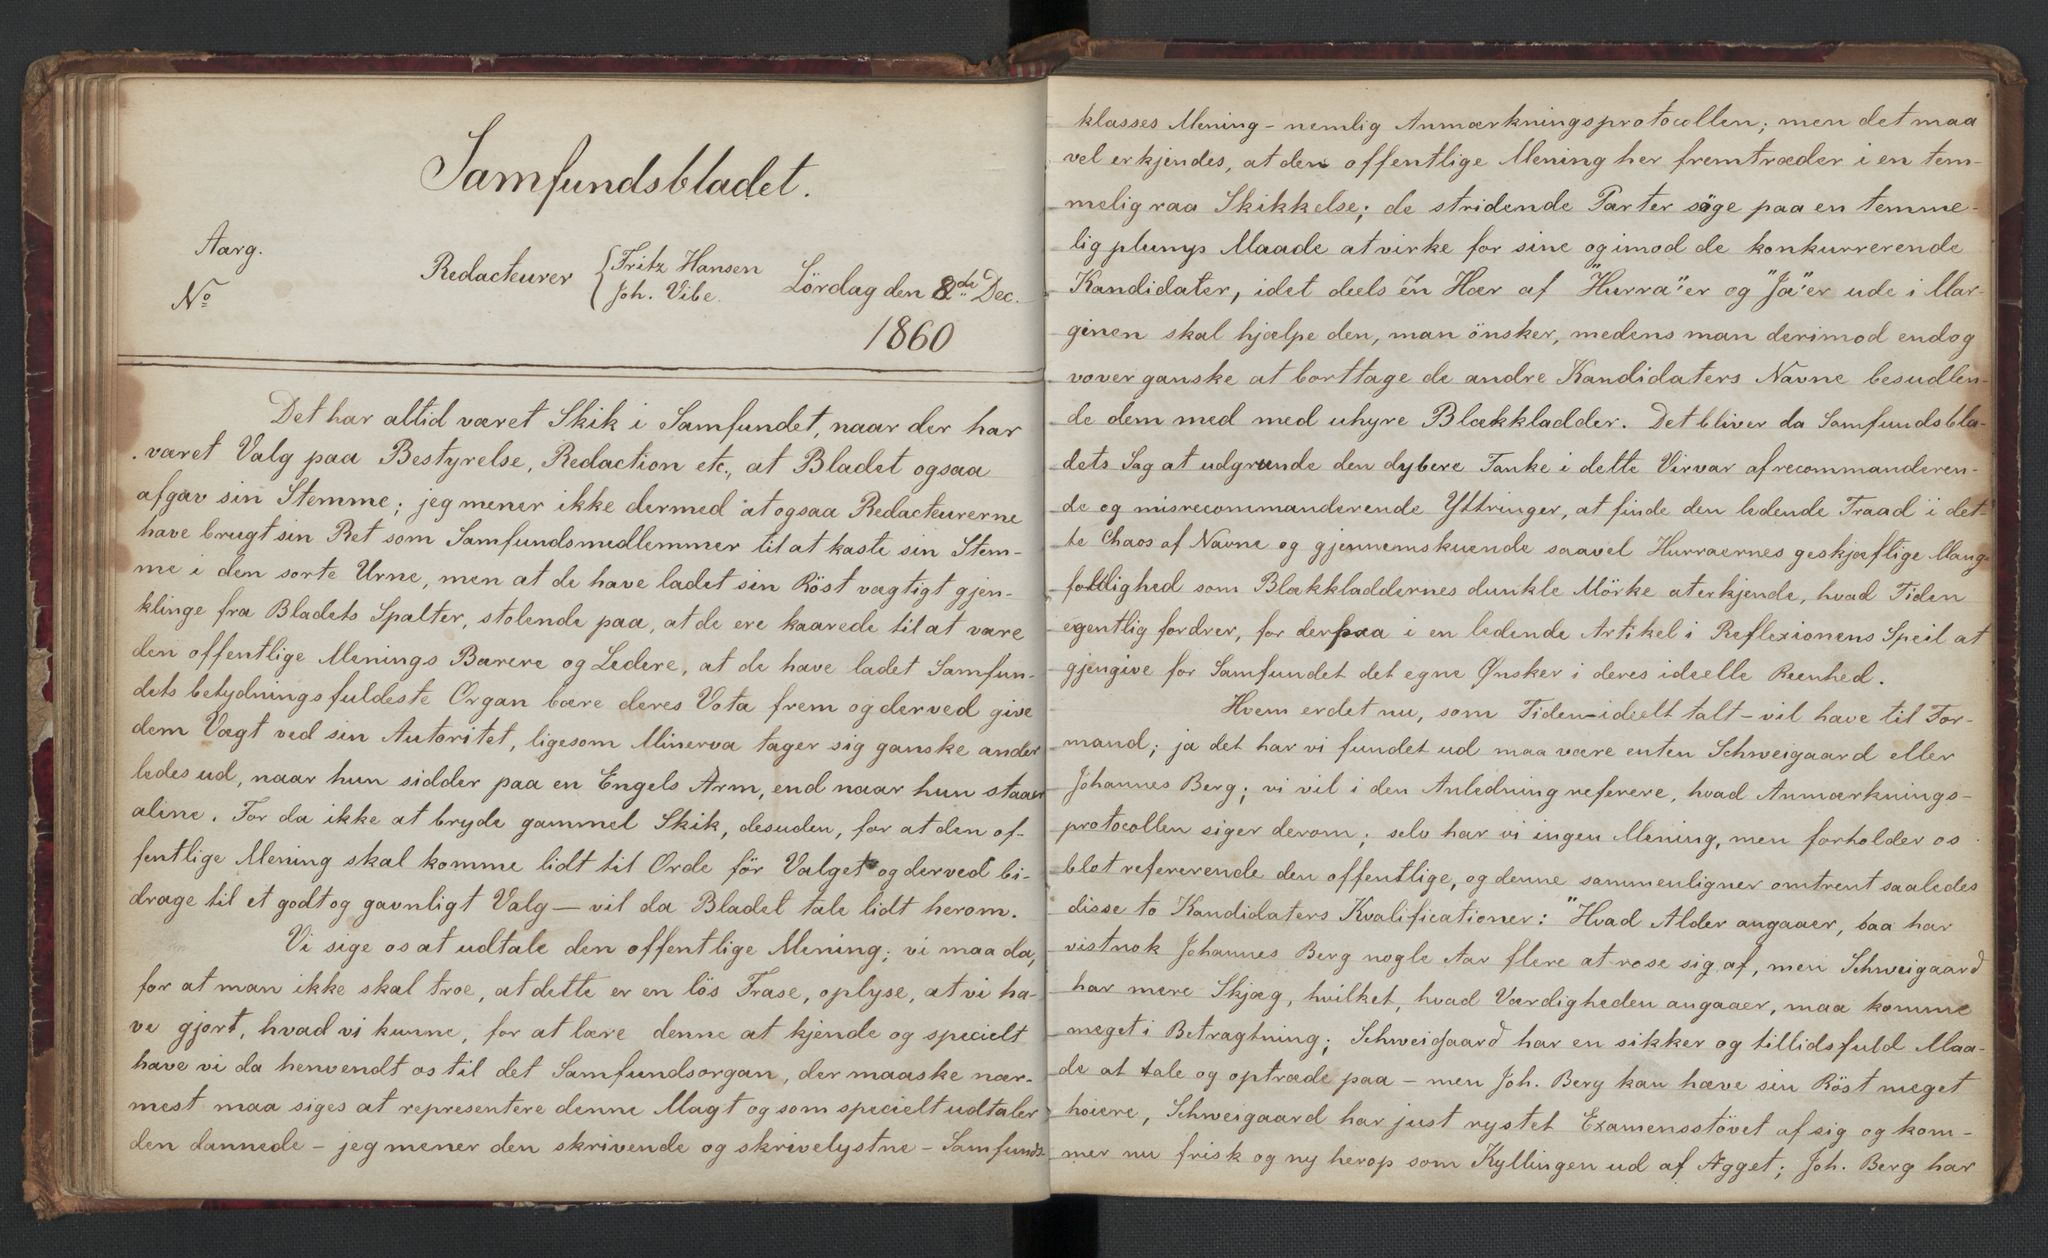 Samfundsbladet.
Aarg.
No
Redacteurer { Fritz Hansen
Joh. Vibe.
Lördag den 8de Dec.
1860
Det har altid været Skik i Samfundet, naar der har
været Valg paa Bestyrelse, Redaction etc., at Bladet ogsaa
afgav sin Stemme; jeg mener ikke dermed at ogsaa Redacteurerne
have brugt sin Ret som Samfundsmedlemmer til at kaste sin Stem-
me i den sorte Urne, men at de have ladet sin Röst vægtigt gjen-
klinge fra Bladets Spalter, stolende paa, at de ere kaarede til at være
den offentlige Menings Bærere og Ledere, at de have ladet Samfun-
dets betydningsfuldeste Organ bære deres Vota frem og derved give
dem Vægt ved sin Autoritet, ligesom Minerva tager sig ganske ander
ledes ud, naar hun sidder paa en Engels Arm, end naar hun staaer
alene. For da ikke at bryde gammel Skik, desuden, for at den of-
fentlige Mening skal komme lidt til Orde för Valget og derved bi-
drage til et godt og gavnligt Valg — vil da Bladet tale lidt herom.
Vi sige os at udtale den offentlige Mening; vi maa da,
for at man ikke skal troe, at dette er en lös Frase, oplyse, at vi ha-
ve gjort, hvad vi kunne, for at lære denne at kjende og specielt
have vi da henvendt os til det Samfundsorgan, der maaske nær-
mest maa siges at representere denne Magt og som specielt udtaler
den dannede – jeg mener den skrivende og skrivelystne – Samfunds-
klasses Mening – nemlig Anmærkningsprotocollen; men det maa
vel erkjendes, at den offentlige Mening her fremtræder i en tem-
melig raa Skikkelse; de stridende Parter söge paa en temme-
lig plumps Maade at virke for sine og imod de konkurrerende
Kandidater, idet deels en Hær af "Hurra"er og "Ja"er ude i Mar-
ginen skal hjælpe den, man önsker, medens man derimod endog
vover ganske at borttage de andre Kandidaters Navne besudlen-
de dem med med uhyre Blækkladder. Det bliver da Samfundsbla-
dets Sag at udgrunde den dybere Tanke i dette Virvar af recommanderen-
de og misrecommanderende Yttringer, at finde den ledende Traad i det-
te Chaos af Navne og gjennemskuende saavel Hurraernes geskjæftige Mang-
foldighed som Blækkladdernes dunkle Mörke at erkjende, hvad Tiden
egentlig fordrer, for derpaa i en ledende Artikel i Reflexionens Speil at
gjengive for Samfundet det egne Ønsker i deres ideelle Reenhed.
Hvem er det nu, som Tiden – ideelt talt – vil have til For-
mand; ja det har vi fundet ud maa være enten Schweigaard eller
Johannes Berg; vi vil i den Anledning referere, hvad Anmærknings-
protocollen siger derom; selv har vi ingen Mening, men forholder os
blot refererende den offentlige, og denne sammenligner omtrent saaledes
disse to Kandidaters Kvalificationer: "Hvad Alder angaaer, saa har
vistnok Johannes Berg nogle Aar flere at rose sig af, men Schweigaard
har mere Skjæg, hvilket, hvad Værdigheden angaaer, maa komme
meget i Betragtning; Schweigaard har en sikker og tillidsfuld Maa-
de at tale og optræde paa – men Joh. Berg kan hæve sin Röst meget
höiere, Schweigaard har just rystet Examensstövet af sig og kom-
mer nu frisk og ny herop som Kyllingen ud af Ægget; Joh. Berg har